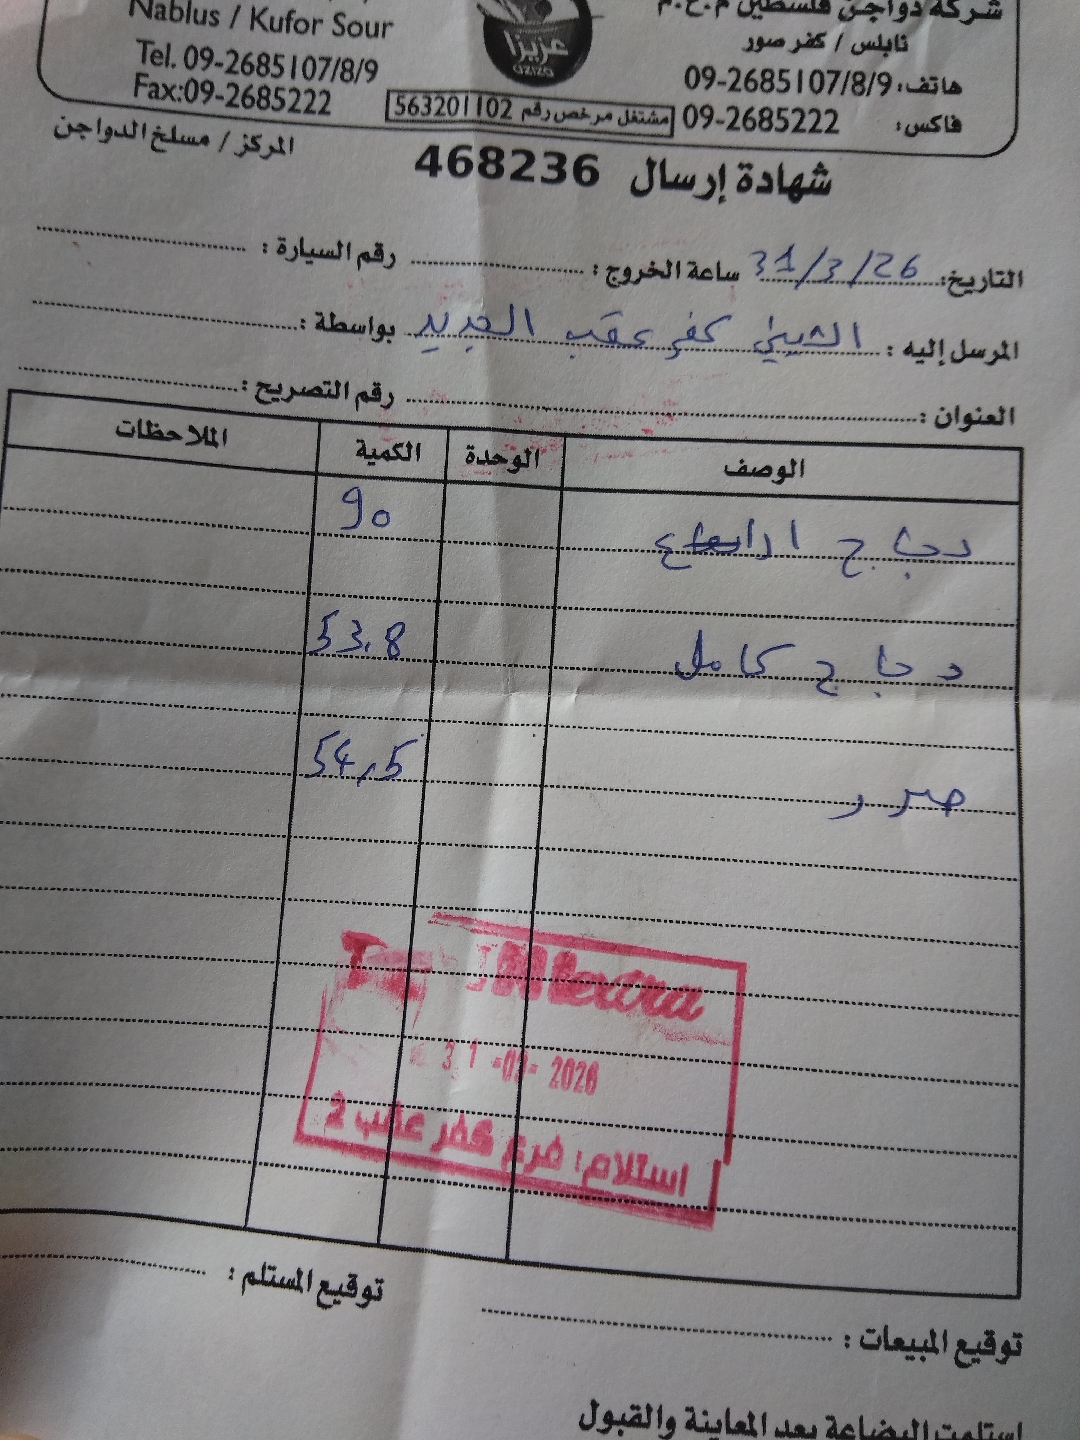 شركة دواجن فلسطين م.خ.م
Nablus / Kufor Sour
نابلس / كفر صور
Tel. 09-2685107/8/9
هاتف: 09-2685107/8/9
Fax:09-2685222
فاكس: 09-2685222
عزيزا
AZIZA
مشتغل مرخص رقم 563201102
المركز / مسلخ الدواجن
شهادة إرسال 468236
التاريخ: 31/3/26 ساعة الخروج: رقم السيارة:
المرسل إليه: الشيني كفر عقب الجديد بواسطة:
العنوان: رقم التصريح:
الوصف الوحدة الكمية الملاحظات
دجاج ارباع 90
دجاج كامل 53.8
صدر 54.5
31-03-2026
استلام: فرع كفر عقب 2
توقيع المستلم:
توقيع المبيعات:
استلمت البضاعة بعد المعاينة والقبول